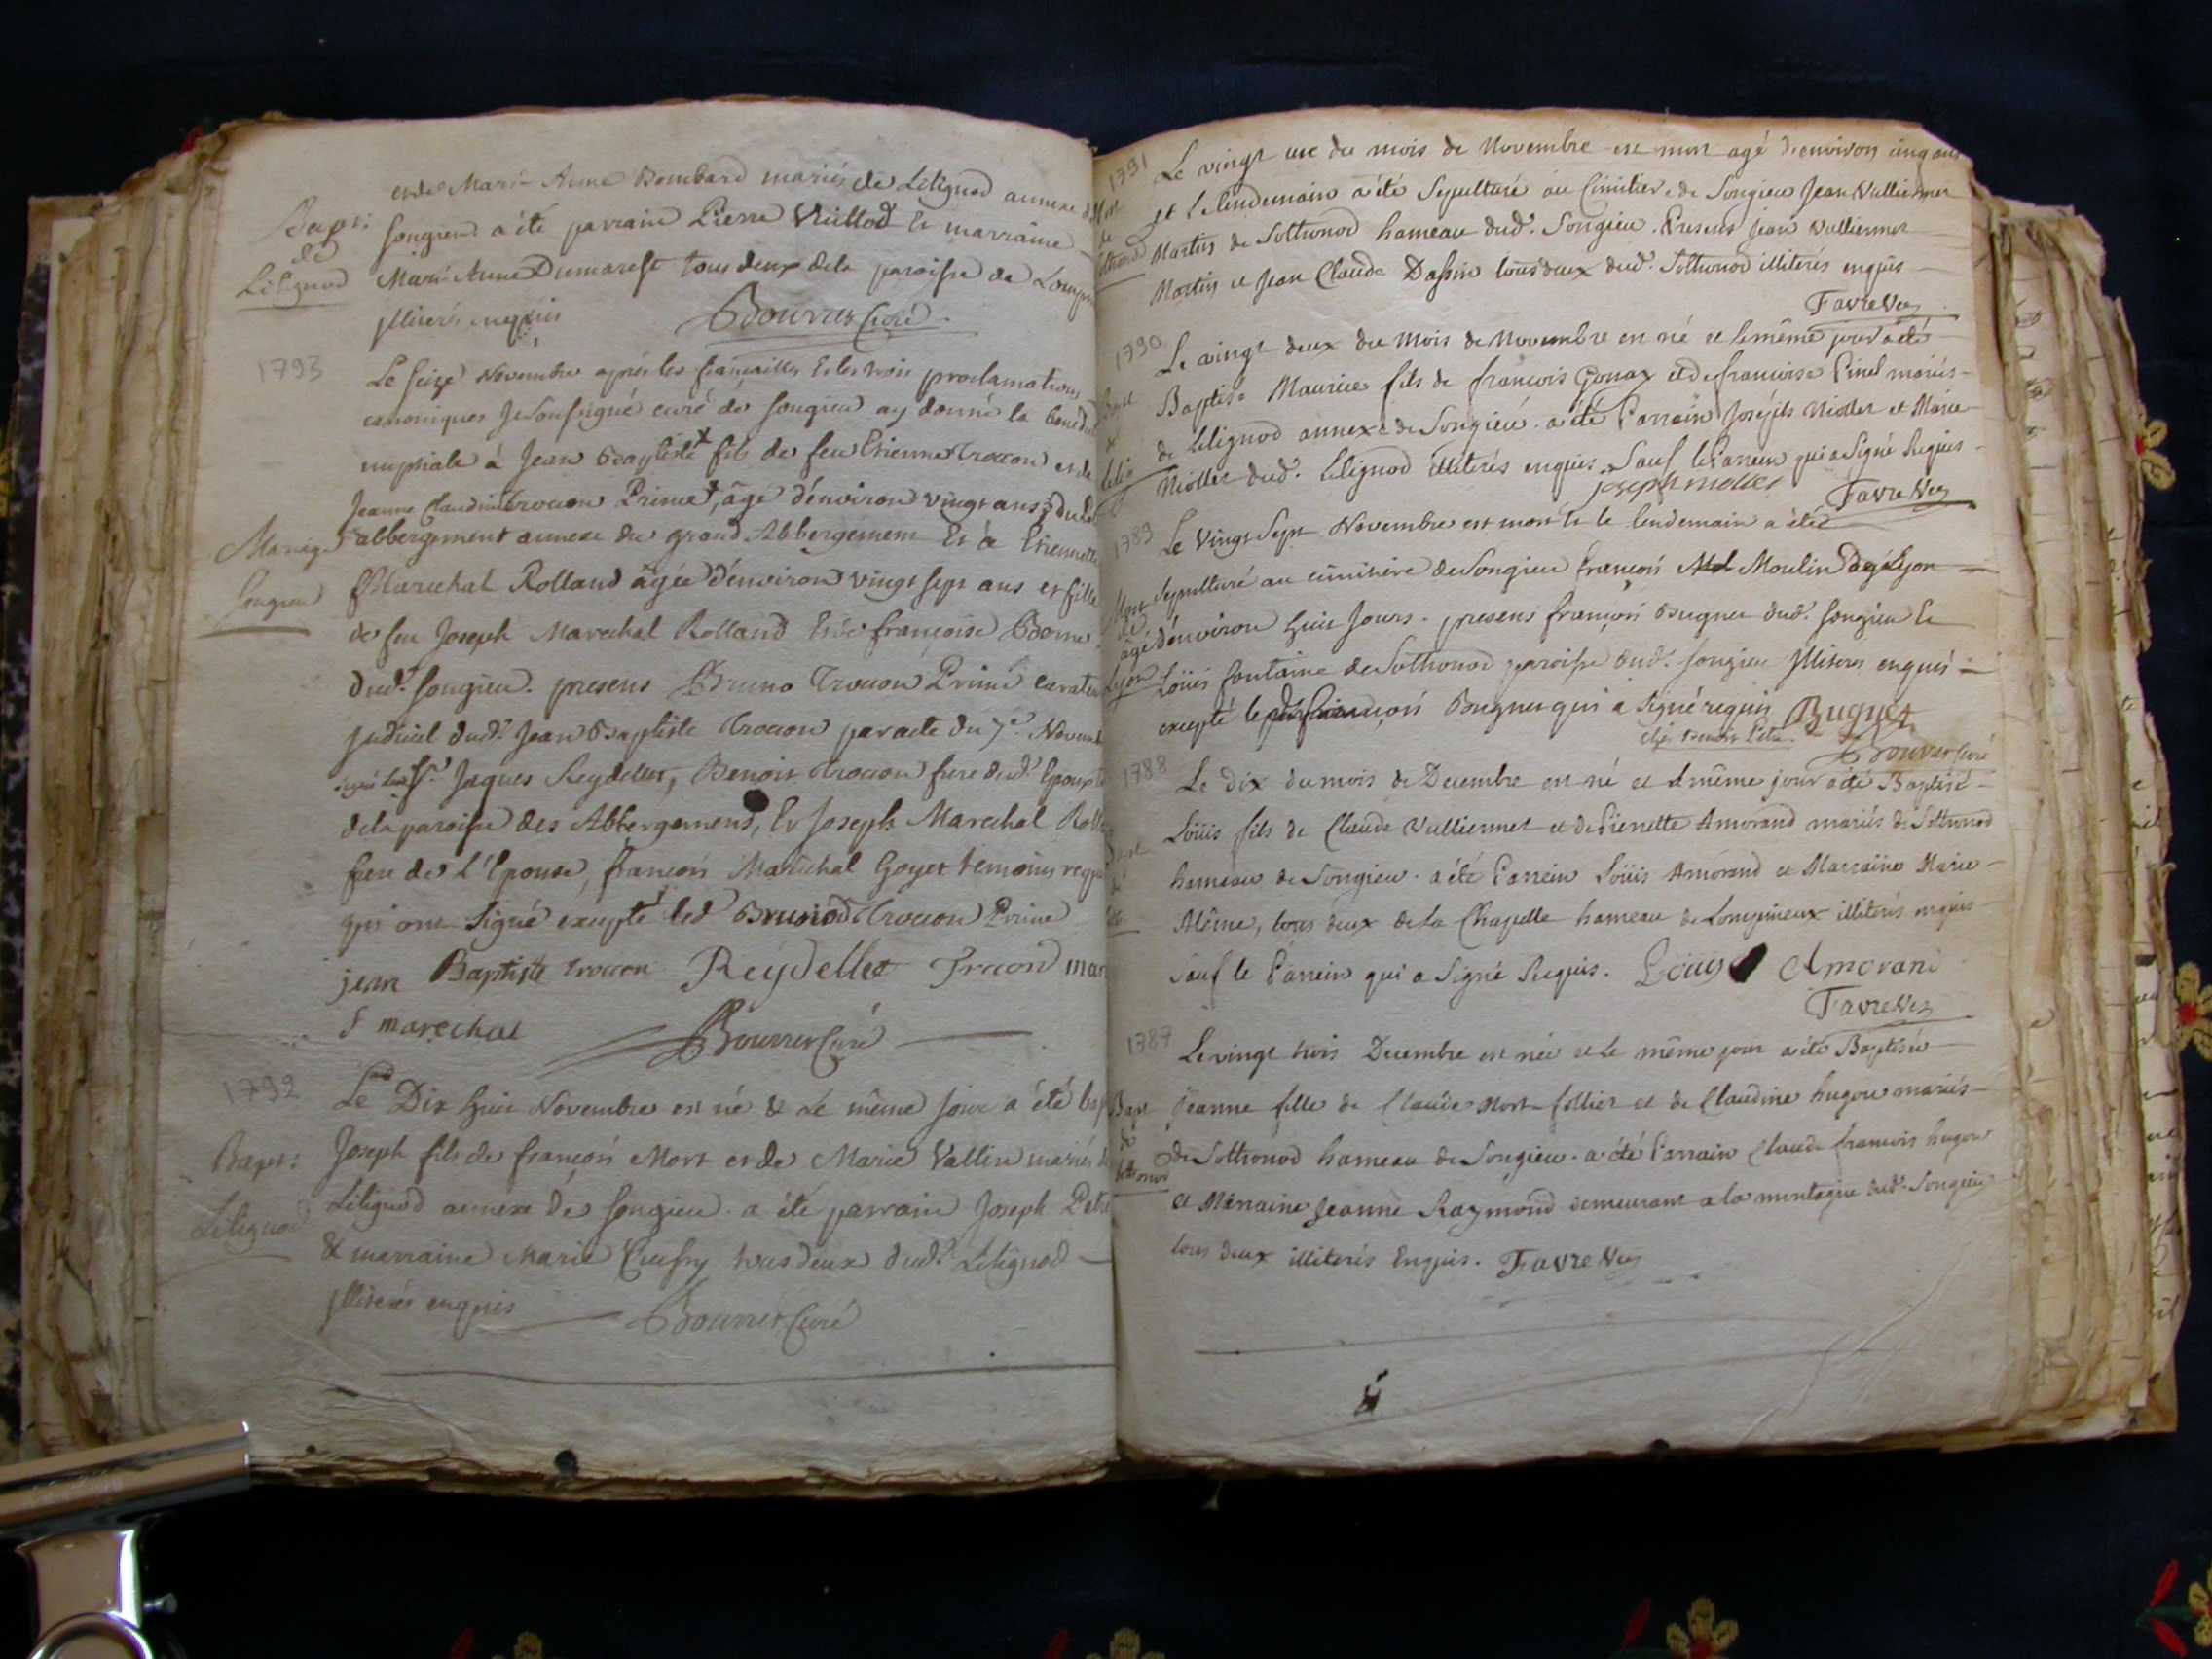 et de Marie Anne Bombard mariés de Lilignod annexe de
Bapt:
de
Lilignod
Songieu a été parrain Pierre Vuillod Et marraine
Marie Anne Dumarest tous deux de la paroisse de
Illiterés enquis Bouvier Curé.
1793
Le seize Novembre après les fiançailles Et les trois proclamations
canoniques Je soussigné curé de Songieu ay donné la
nuptiale à Jean Baptiste fils de feu Etienne Trocon et de
Jeanne Claudine Trocon Prime, âgé d'environ vingt ans
Mariage
Songieu
abbergement annexe du grand Abbergement Et à Etiennette
Marechal Rolland âgée d'environ vingt sept ans et fille
de feu Joseph Marechal Rolland Et de françoise
dud. Songieu. presens Bruno Trocon Prime
judiciel dud. Jean Baptiste Trocon par acte du 7e. Novemb
Jaques Reydellet, Benoit Trocon frere dud. Epoux
de la paroisse des Abbergemens, Et Joseph Marechal
frere de L'Epouse, françois Maréchal Goyet temoins
qui ont signé excepté led Bruno Trocon Prime
jean Baptiste trocon Reydellet Trocon mar
f marechal Bouvier Curé
1792
Le Dix huit Novembre est né & Le même Jour a été
Bapt:
Lilignod
Joseph fils de françois Mort et de Marie Vallin mariés
Lilignod annexe de Songieu. a été parrain Joseph
& marraine Marie tous deux dud. Lilignod
Illiterés enquis Bouvier Curé
1791
Le vingt une du mois de Novembre est mort agé d'environ cinq ans
et le lendemain a été Sepulturé au Cimitiere de Songieu Jean Vulliermet
Martin de Sothonod hameau dud. Songieu. Presens Jean Vulliermet
Martin et Jean Claude Dassin tous deux dud. Sothonod illiterés enquis
Favre Vic
1790
Le vingt deux du Mois de Novembre est né et le même jour a été
Baptisé Maurice fils de françois Gonay et de françoise Pinel mariés
de Lilignod annexe de Songieu. a été Parrain Miollet et Marie
Miollet dud. Lilignod illiterés enquis. Sauf le Parrein qui a Signé Requis
joseph miollet Favre Vic
1789
Le Vingt Sept Novembre est mort et le lendemain a été
Mort
de
Lyon
Sepulturé au cimitière de Songieu françois Moulin de Lyon
âgé d'environ huit Jours. presens françois Bugnet dud. Songieu Et
Loüis fontaine de Sothonod paroisse dud. Songieu Illiterés enquis
excepté le françois Bugnet qui a Signé requis Bugnet
Bouvier Curé
1788
Le dix du mois de Decembre est né et le même jour a été Baptisé
Loüis fils de Claude Vulliermet et de Pierrette Amorand mariés de Sothonod
hameau de Songieu. a été Parrein Loüis Amorand et Marraine Marie
Même, tous deux de la Chapelle hameau de Lompnieux illiterés enquis
Sauf le Parrein qui a Signé Requis. Louis Amorand
Favre Vic
1787
Le vingt trois Decembre est née et le même jour a été Baptisée
Bapt
de
Sothonod
Jeanne fille de Claude Mort-follier et de Claudine hugon mariés
de Sothonod hameau de Songieu. a été Parrain Claude francois hugon
et Marraine Jeanne Raymond demeurant a la montagne dud. Songieu
tous deux illiterés Enquis. Favre Vic